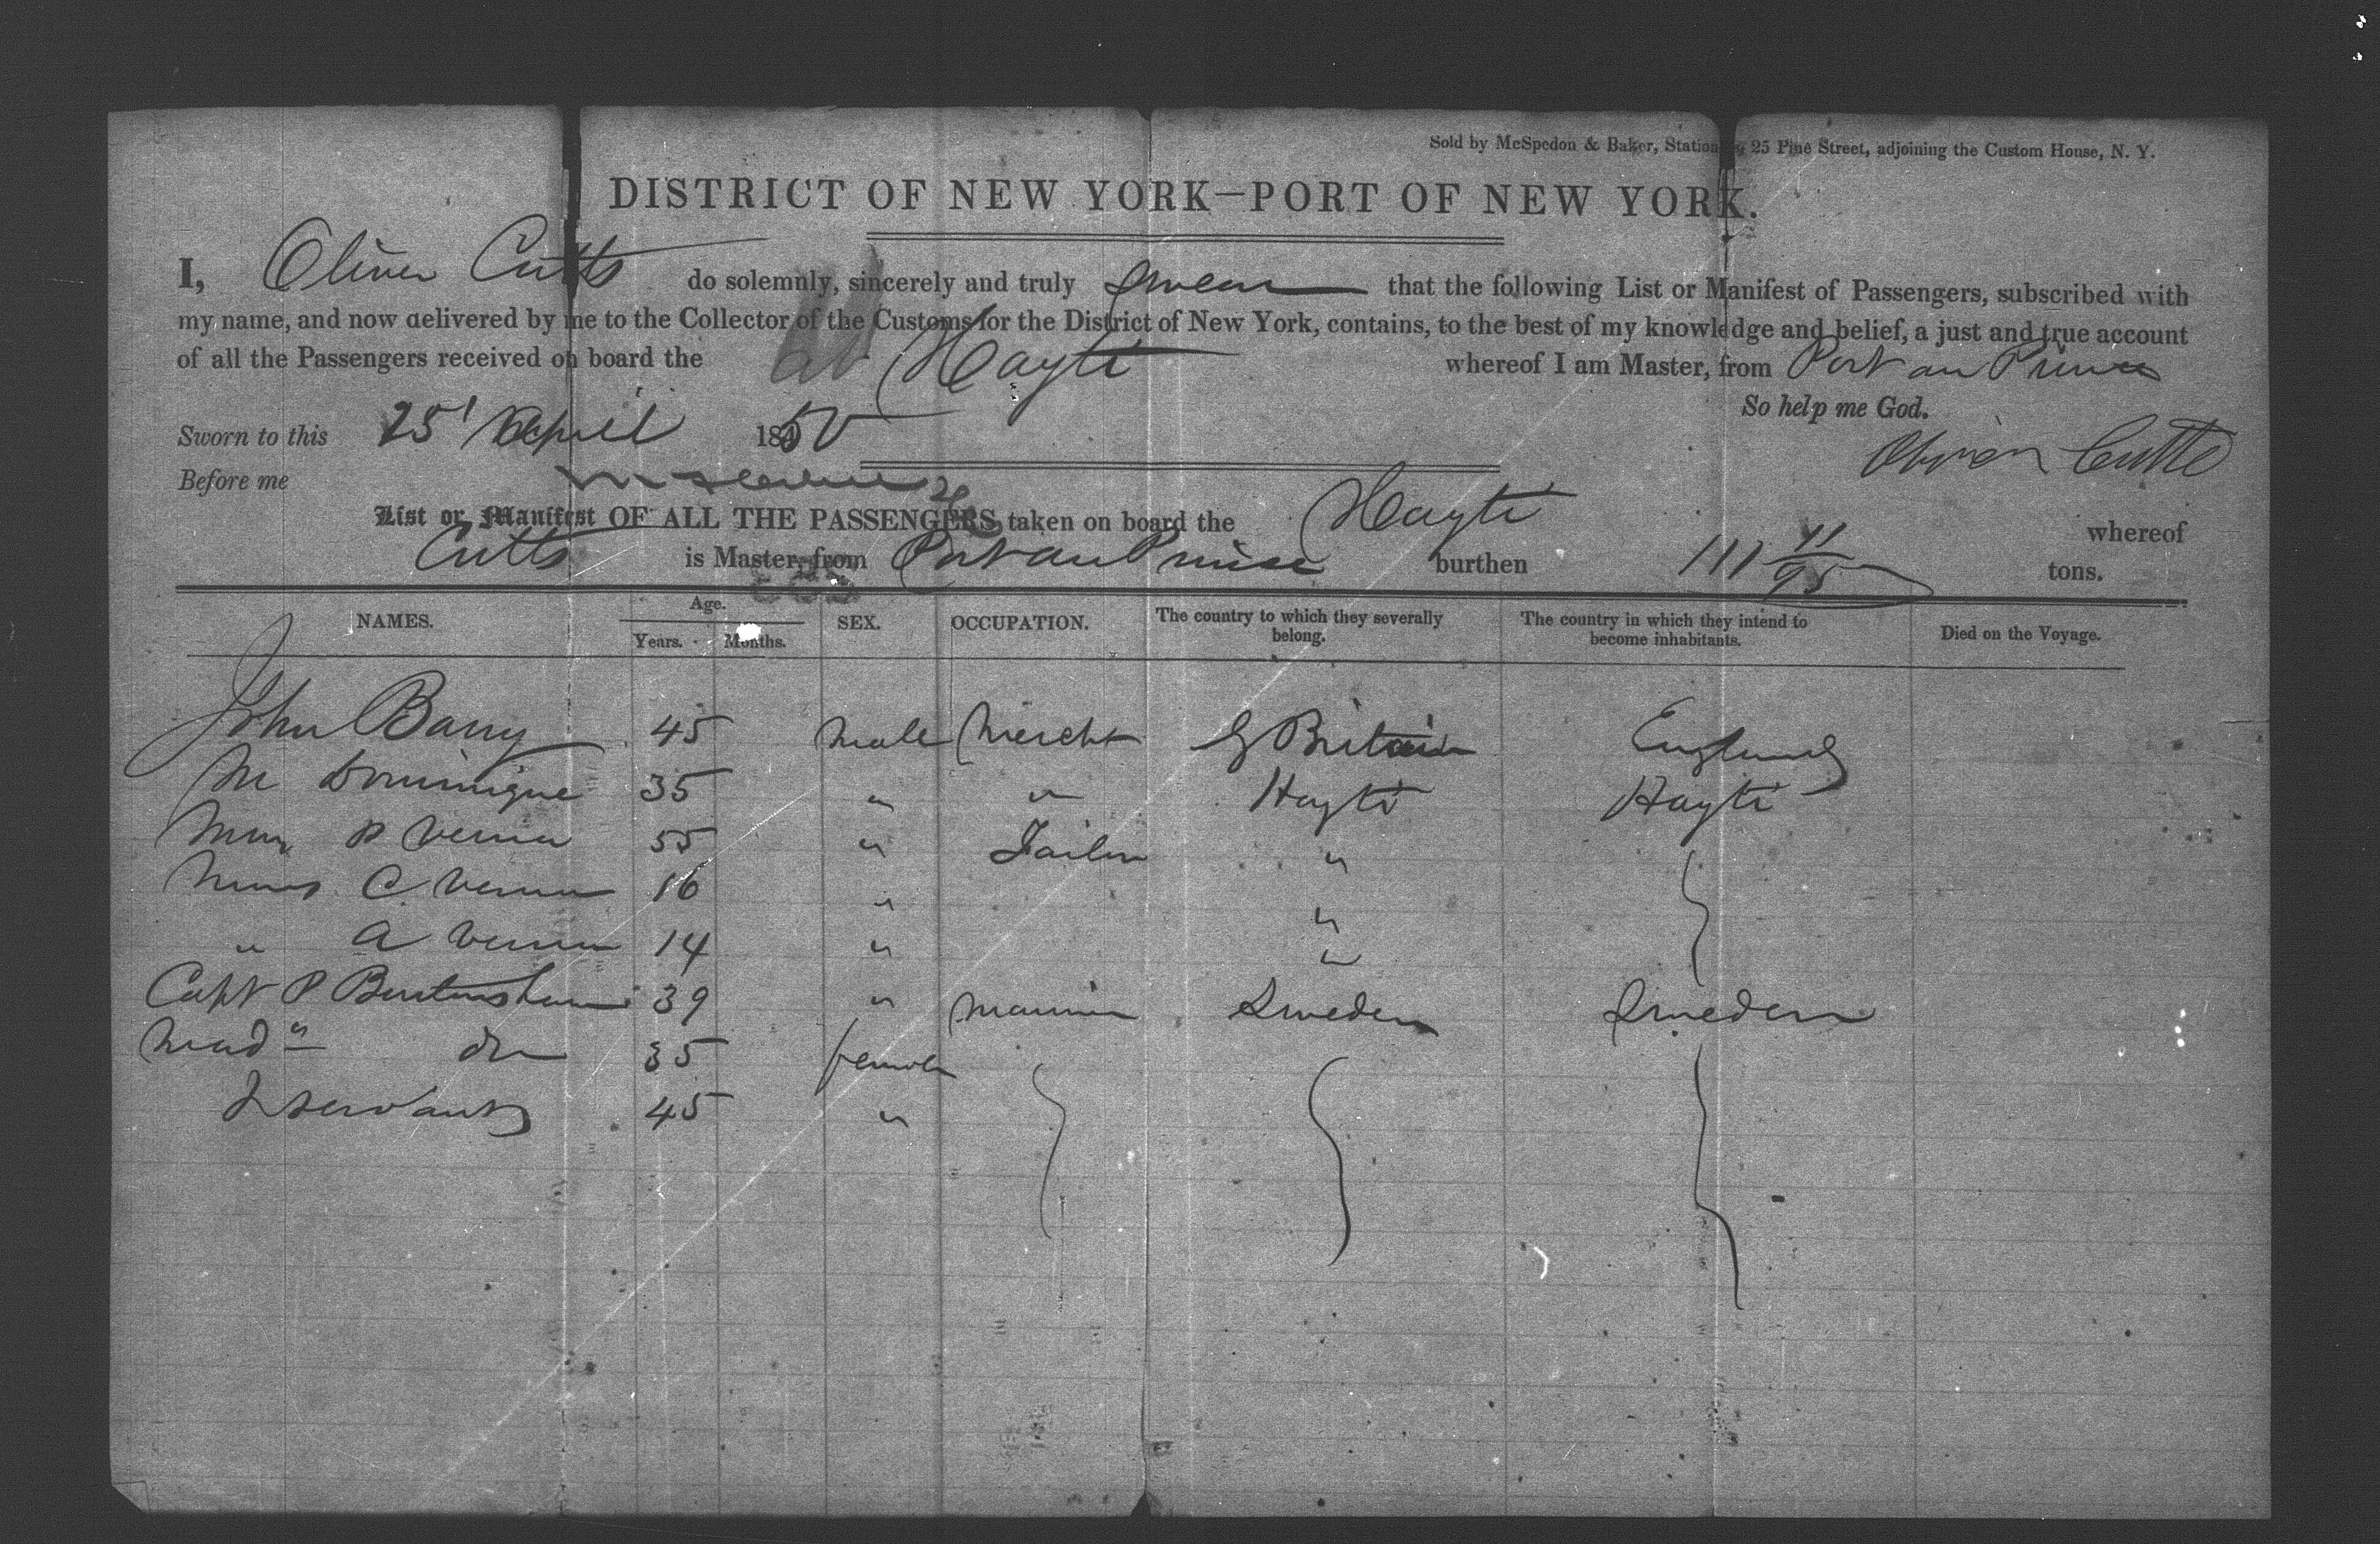 Sold by McSpedon & Baker, Stationers 25 Pine Street, adjoining the Custom House, N. Y.
DISTRICT OF NEW YORK—PORT OF NEW YORK.
I, Oliver Cutts do solemnly, sincerely and truly swear that the following List or Manifest of Passengers, subscribed with
my name, and now delivered by me to the Collector of the Customs for the District of New York, contains, to the best of my knowledge and belief, a just and true account
of all the Passengers received on board the Hayti whereof I am Master, from Port au Prince
So help me God.
Sworn to this 25 April 1850
Oliver Cutts
Before me
List or Manifest OF ALL THE PASSENGERS taken on board the Hayti whereof
Cutts is Master, from Port au Prince burthen 111 41/95 tons.
NAMES. Age. Years. Months. SEX. OCCUPATION. The country to which they severally belong. The country in which they intend to become inhabitants. Died on the Voyage.
John Barry 45 male Mercht G Britain England
M Dominique 35 " " Hayti Hayti
P 55 " Tailor "
C 16 " "
" A 14 " "
Capt P 39 " mariner Sweden Sweden
Mad do 35 female
2 servants 45 "